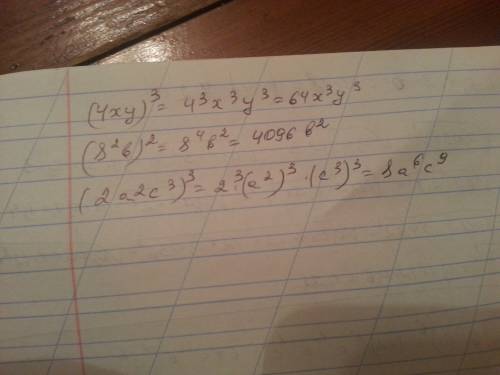 (4xy)³ = 4³x³y³ = 64x³y³
(8²b)² = 8⁴b² = 4096 b²
(2a2c³)³ = 2³·(a²)³·(c³)³ = 8a⁶c⁹